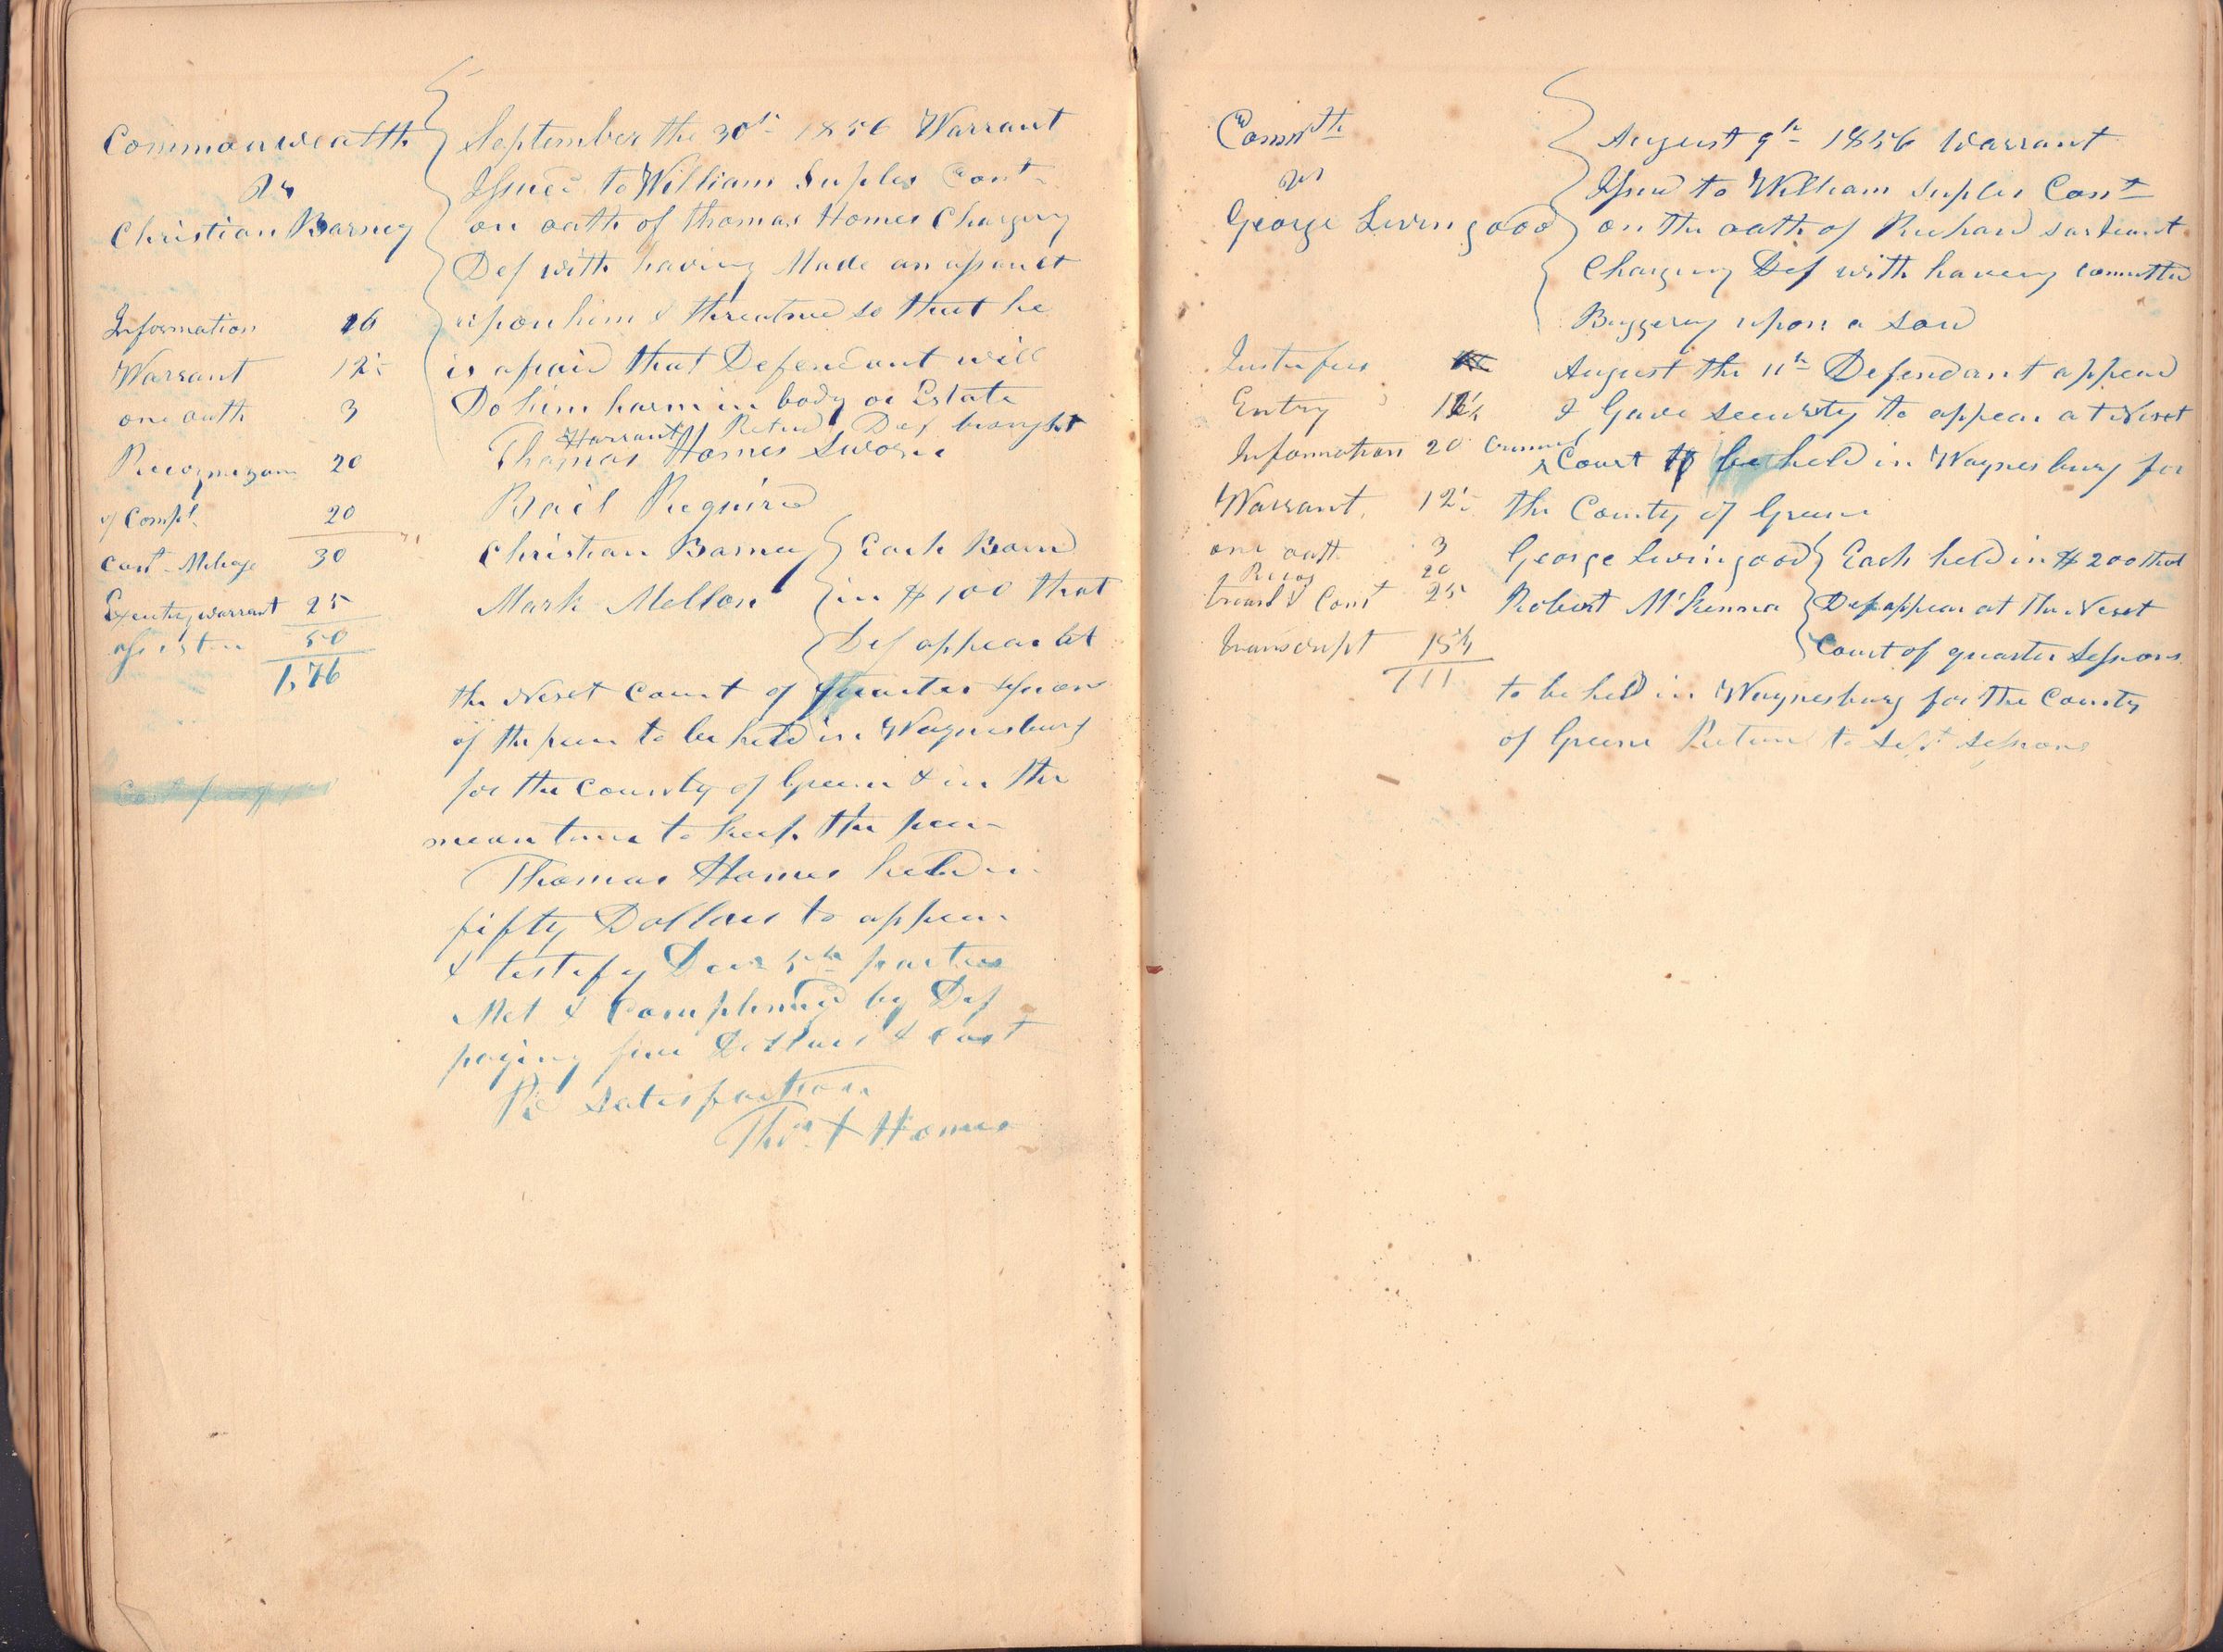 Commonwealth
vs
Christian Barney
Information 26
Warrant 12½
one oath 3
Recognizan 20
of Compl. 20
Const Mileage 30
Executing warrant 25
50
1,76
September the 30th 1856 Warrant
Issued to William Suples Const
on oath of Thomas Homes Charging
Def with having Made an assault
upon him & threatned so that he
is afraid that Defendant will
Do him harm in body or Estate
Warrant Retud Def brought
Thomas Homes Sworn
Bail Required
Christian Barney } Each Bound
Mark Mellon } in $100 that
Def appear at
the Next Court of Quarter Session
of the peace to be held in Waynesburg
for the County of Green & in the
mean time to keep the peace
Thomas Homes held in
fifty Dollars to appear
& testify 5th parties
Met & by Def
paying five Dollars & Cost
Rd Satisfaction
Thos X Homes
Comwth
vs
George Livingood
Justis fees
Entry 12½
Information 20
Warrant 12½
one oath 3
Recog 20
Const 25
Transcript 15½
111
August 9th 1856 Warrant
Issued to William Suples Const
on the oath of Richard Sarteant
Charging Def with having committed
Buggery upon a Sow
August the 11th Defendant appeard
& Gave security to appear at Next
Court to be held in Waynesburg for
the County of Green
George Livingood } Each held in $200 that
Robert McKenna } Def appear at the Next
Court of quarter Sessions
to be held in Waynesburg for the County
of Greene Return to Sept Sessions